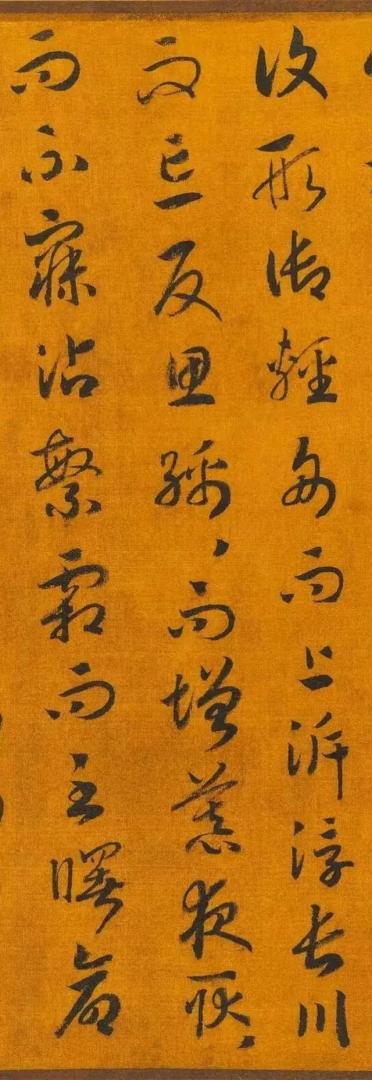 復形御輕舟而上泝浮長川
而忘反思綿〻而增慕夜耿〻
而不寐沾繁霜而至曙命